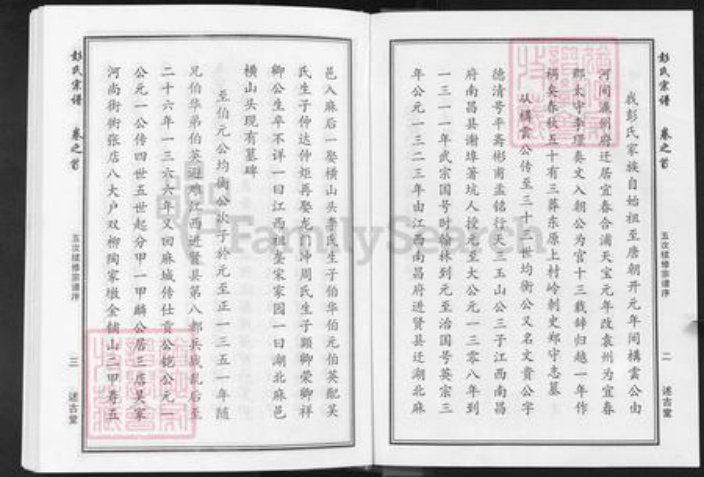 彭氏宗谱 卷之首 五次续修宗谱序 二 述古堂
我彭氏家族自始祖至唐朝开元年间構雲公由
河间瀛州府迁居宜春合浦天宝元年改袁州为宜春
郡太守李璟奏文入朝公为官十三载辞归越一年作
祸矣春秋五十有三葬东原上村岭刺史郑守志墓
从構雲公传至三十一世均衡公又名文贵公字
德清号平斋彬甫孟铭行天三玉山公三子江西南昌
府南昌县谢埠著坑人授元至大公元一三零八年到
一三一一年武宗国号时翰林到元至治国号英宗三
年公元一三二三年由江西南昌府进贤县迁湖北麻
邑入麻后一娶横山头李氏生子伯华伯元伯英配吴
氏生子仲达仲矩再娶龙门冲周氏生子顕卿荣卿祥
卿公生卒不详一曰江西祖茔宋家园一曰湖北麻邑
横山头现有墓碑
至伯元公均衡公次子於元至正一三五一年随
兄伯华弟伯英避难江西进贤县第八都兵战乱后至
二十六年一三六六年又回麻城传仕贡公铠公元一
公元一公传四世五世起分甲一甲麟公居三店吴家
河尚街街张店八大户双柳陶家墩金铺山二甲寿五
彭氏宗谱 卷之首 五次续修宗谱序 三 述古堂
FamilySearch